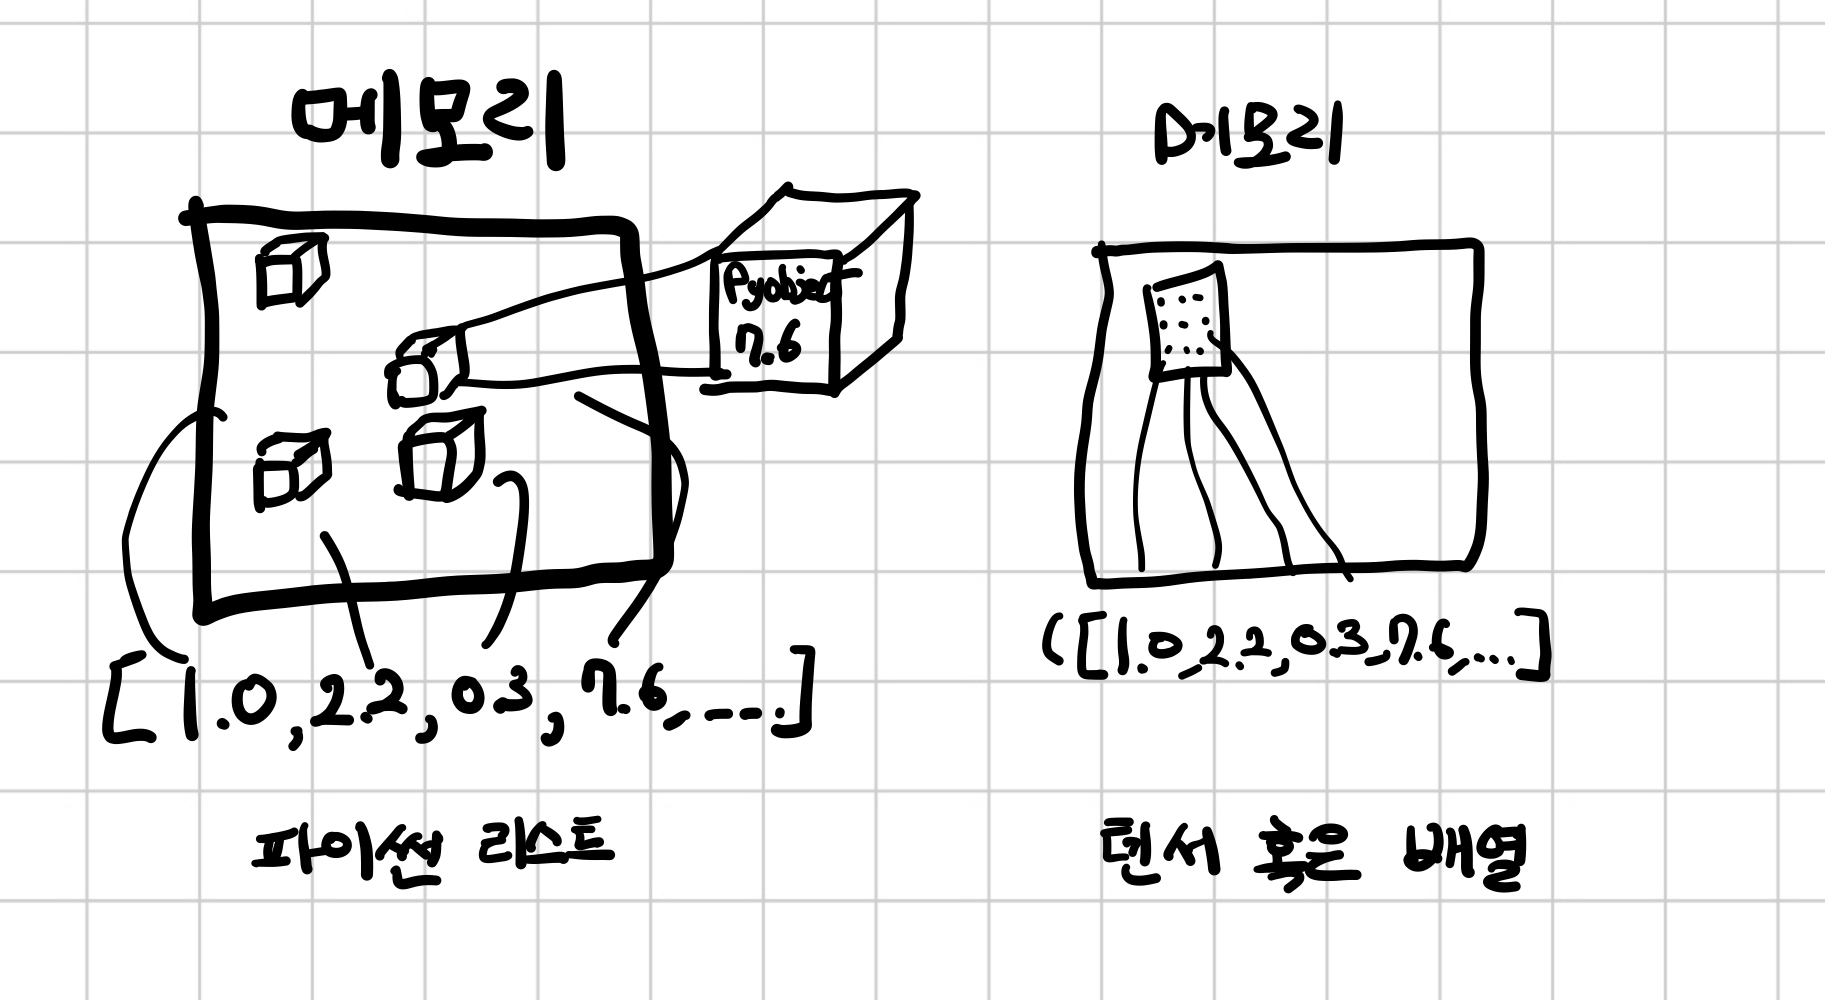 메모리
Pyobject
7.6
[1.0, 2.2, 0.3, 7.6, ....]
파이썬 리스트
메모리
([1.0, 2.2, 0.3, 7.6, ...]
텐서 혹은 배열